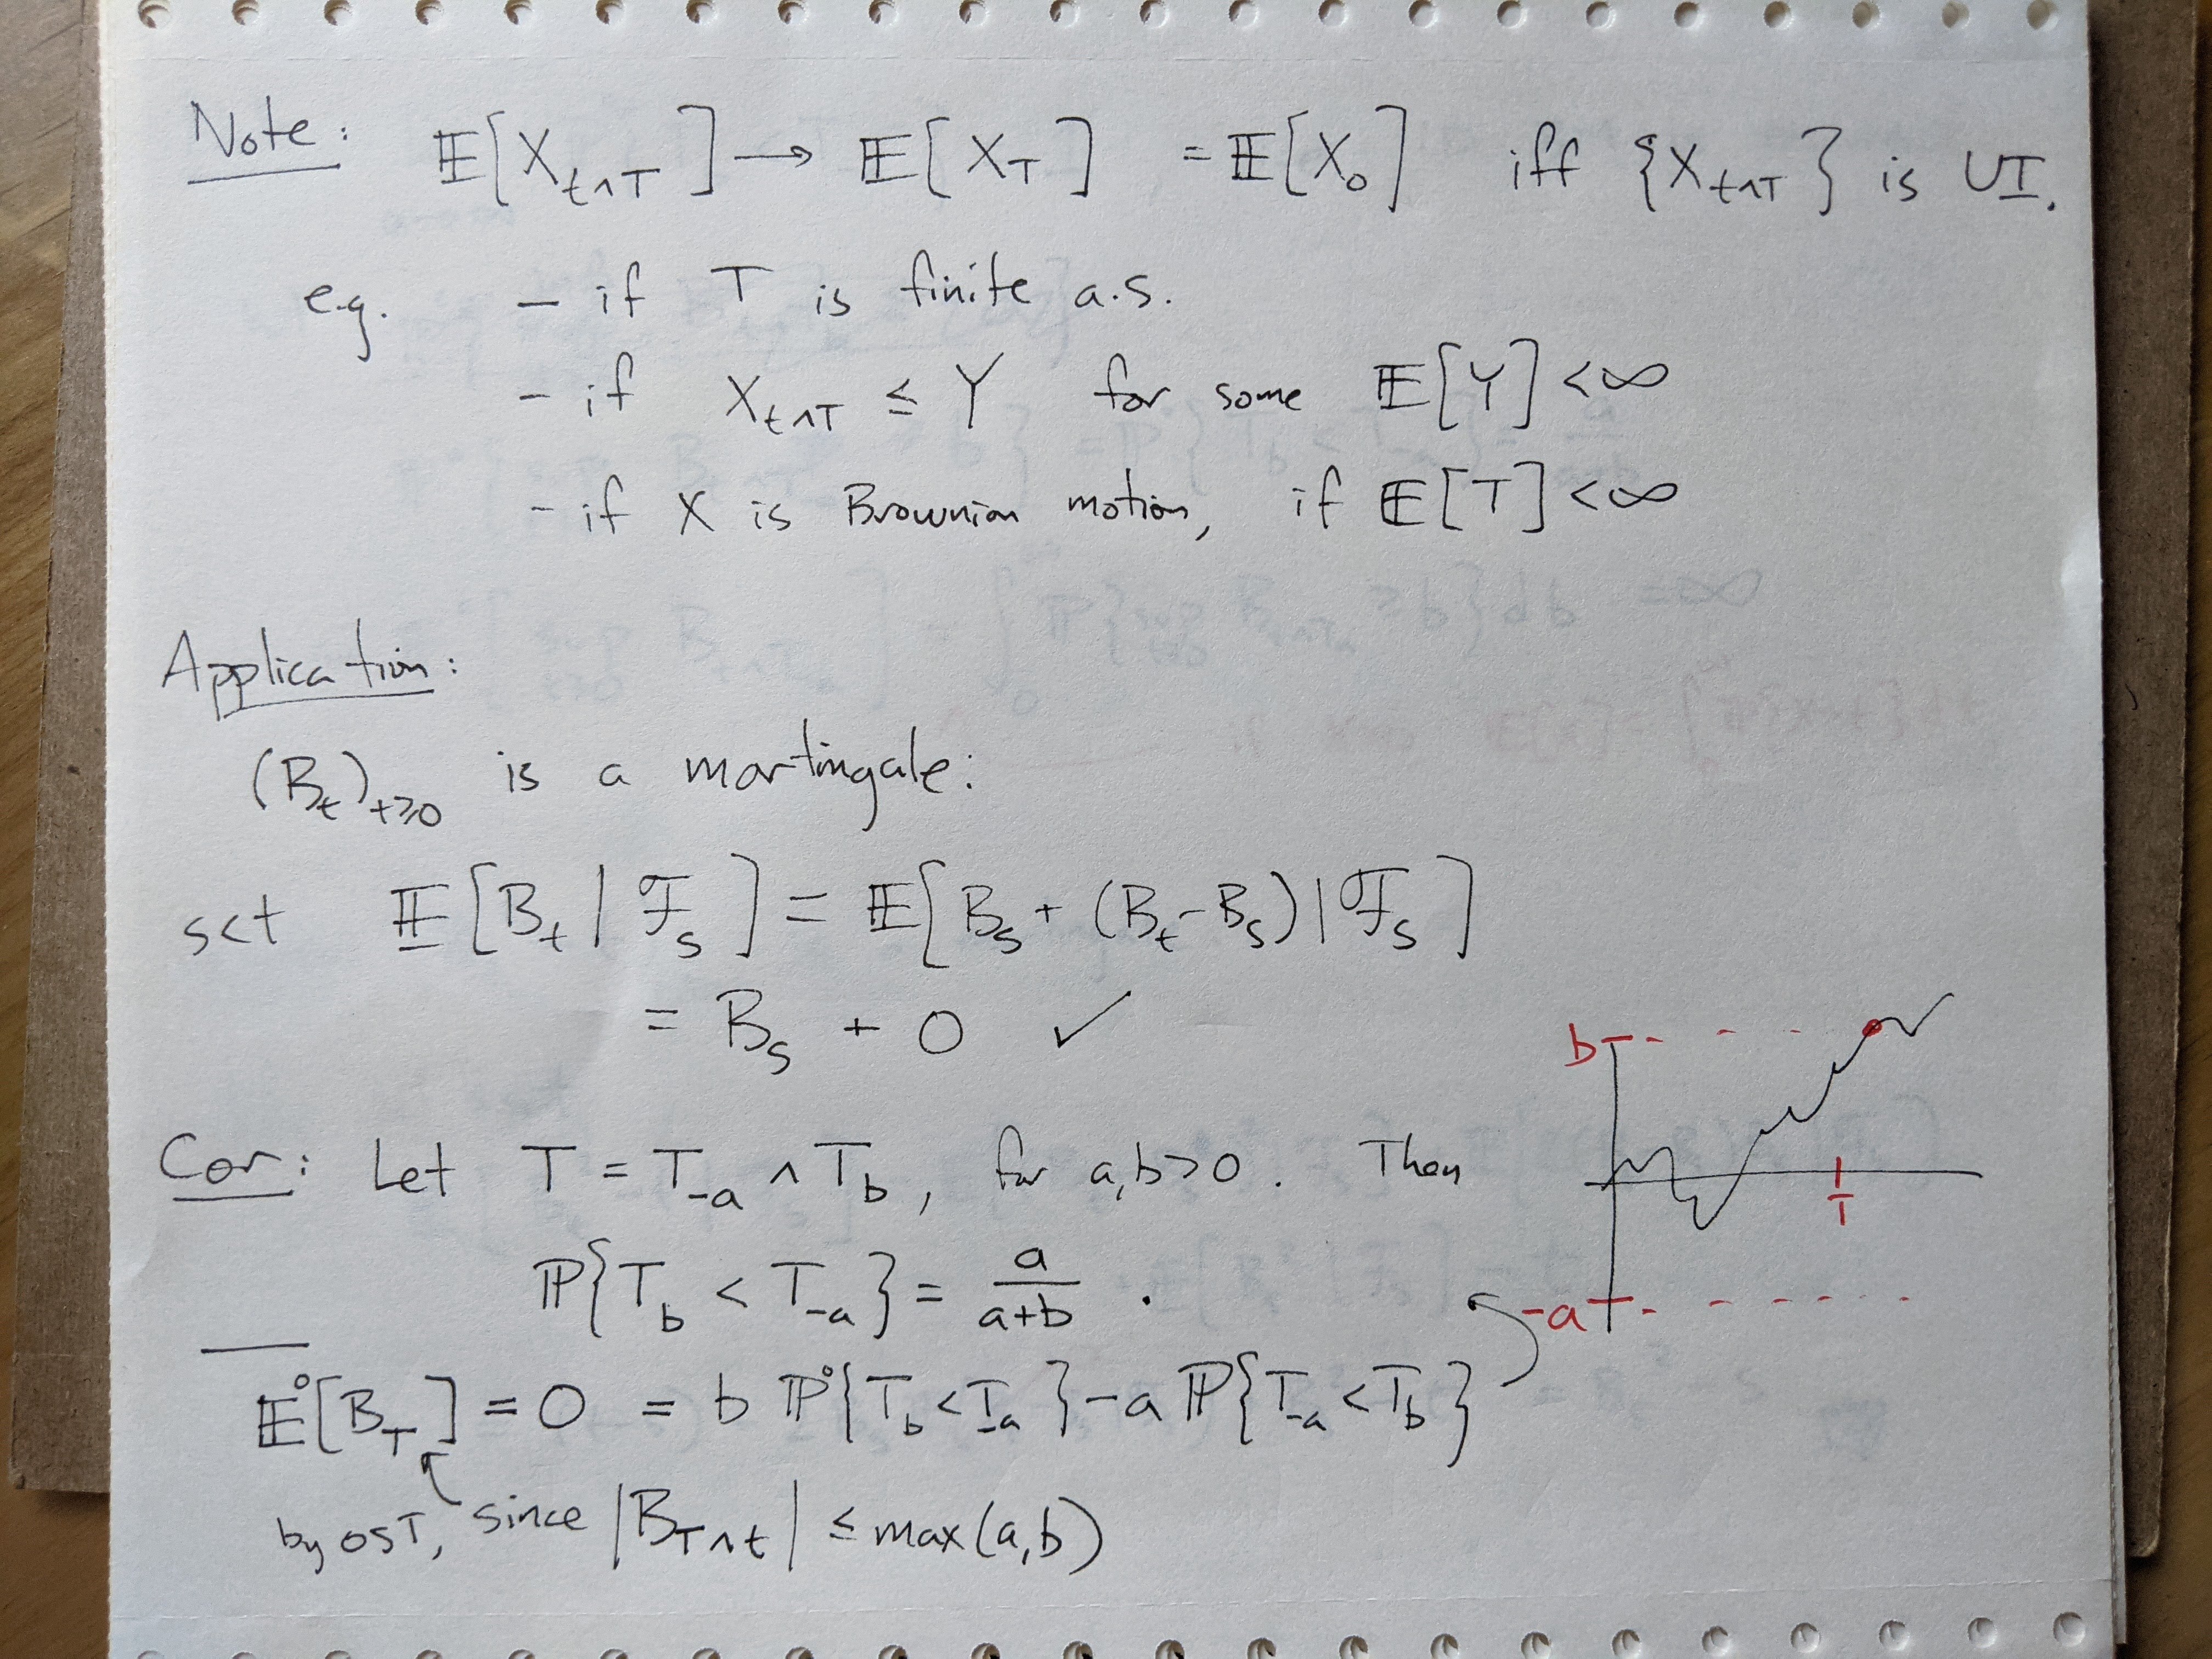 Note: 𝔼[X_{t∧T}] → 𝔼[X_T] = 𝔼[X_0] iff {X_{t∧T}} is UI.
e.g. - if T is finite a.s.
- if X_{t∧T} ≤ Y for some 𝔼[Y] < ∞
- if X is Brownian motion, if 𝔼[T] < ∞
Application:
(B_t)_{t≥0} is a martingale:
s<t 𝔼[B_t | ℱ_s] = 𝔼[B_s + (B_t - B_s) | ℱ_s]
= B_s + 0 ✓
b
Cor: Let T = T_{-a} ∧ T_b, for a,b>0. Then
T
ℙ{T_b < T_{-a}} = a/(a+b).
-a
𝔼^0[B_T] = 0 = b ℙ^0{T_b < T_{-a}} - a ℙ{T_{-a} < T_b}
by OST, since |B_{T∧t}| ≤ max(a,b)